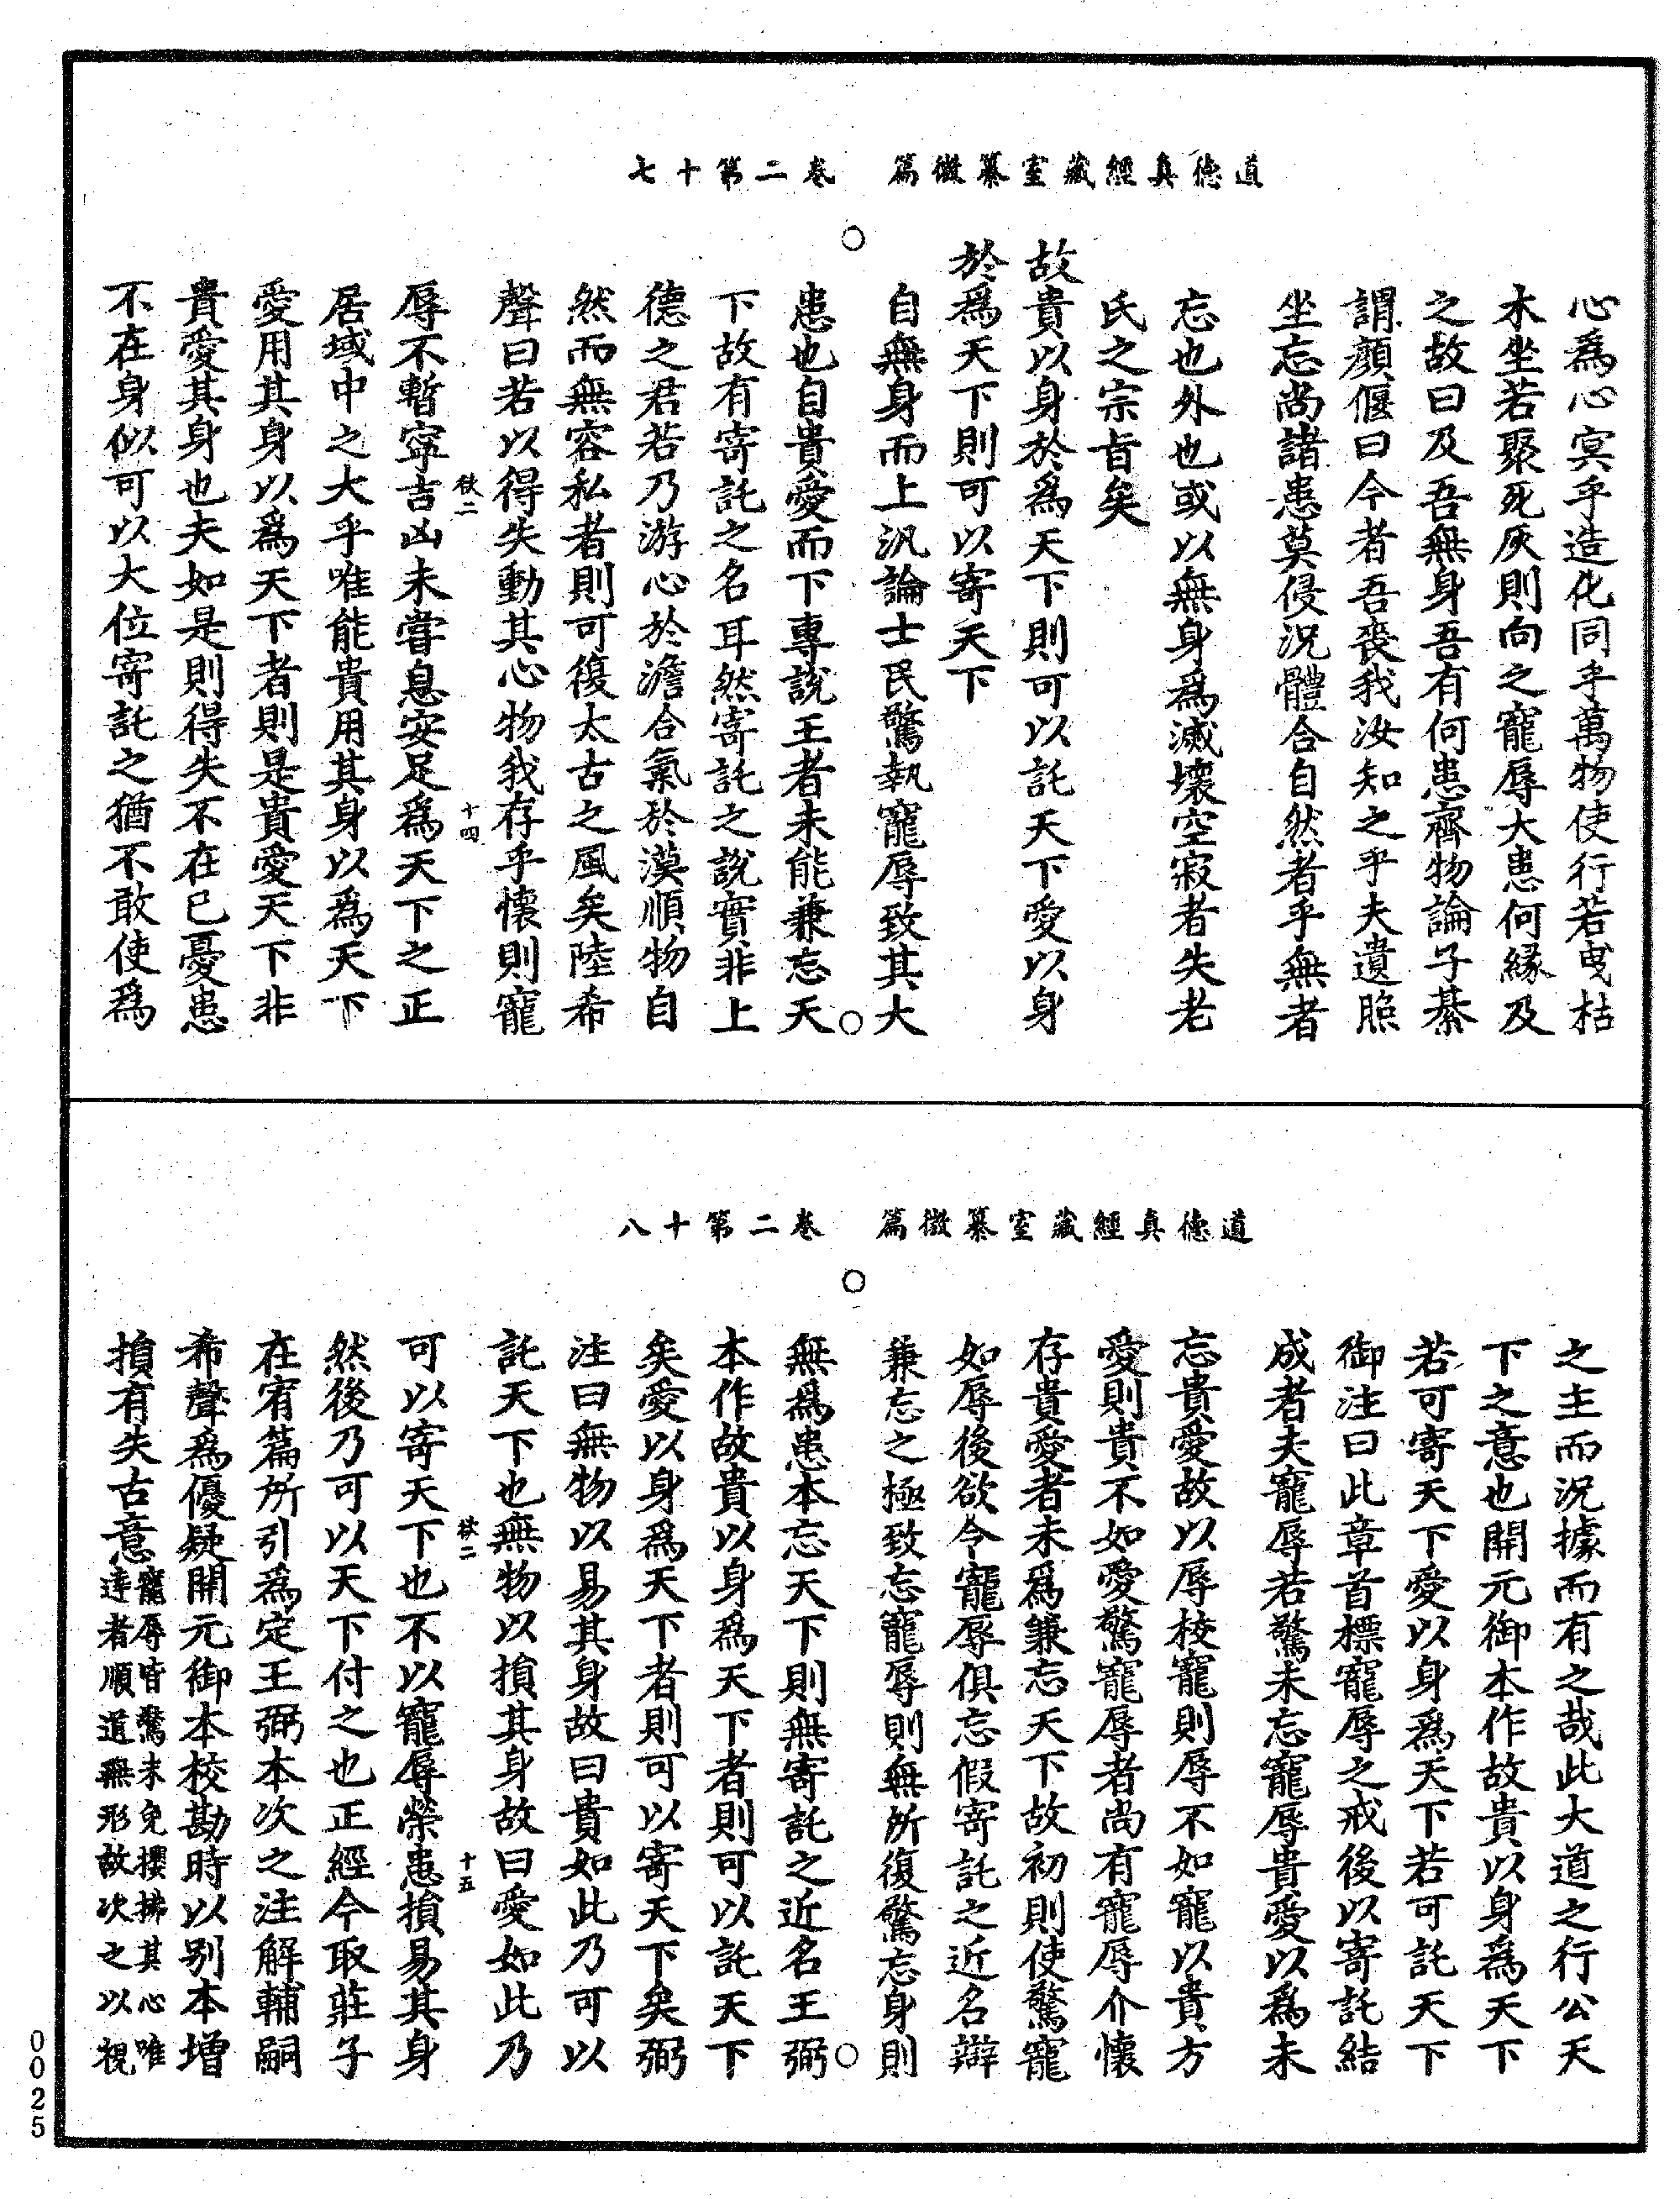 道德真經藏室纂微篇　卷二第十七
心爲心冥乎造化同乎萬物使行若曳枯
木坐若聚死灰則向之寵辱大患何緣及
之故曰及吾無身吾有何患齊物論子綦
謂顏偃曰今者吾喪我汝知之乎夫遺照
坐忘尚諸患莫侵況體合自然者乎無者
忘也外也或以無身爲滅壞空寂者失老
氏之宗旨矣
故貴以身於爲天下則可以託天下愛以身
於爲天下則可以寄天下
自無身而上汎論士民驚執寵辱致其大
患也自貴愛而下專說王者未能兼忘天
下故有寄託之名耳然寄託之說實非上
德之君若乃游心於澹合氣於漠順物自
然而無容私者則可復太古之風矣陸希
聲曰若以得失動其心物我存乎懷則寵
辱不暫寧吉凶未嘗息安足爲天下之正
居域中之大乎唯能貴用其身以爲天下
愛用其身以爲天下者則是貴愛天下非
貴愛其身也夫如是則得失不在己憂患
不在身似可以大位寄託之猶不敢使爲
欲二　十四
道德真經藏室纂微篇　卷二第十八
之主而況據而有之哉此大道之行公天
下之意也開元御本作故貴以身爲天下
若可寄天下愛以身爲天下若可託天下
御注曰此章首標寵辱之戒後以寄託結
成者夫寵辱若驚未忘寵辱貴愛以爲未
忘貴愛故以辱校寵則辱不如寵以貴方
愛則貴不如愛驚寵辱者尚有寵辱介懷
存貴愛者未爲兼忘天下故初則使驚寵
如辱後欲令寵辱俱忘假寄託之近名辯
兼忘之極致忘寵辱則無所復驚忘身則
無爲患本忘天下則無寄託之近名王弼
本作故貴以身爲天下者則可以託天下
矣愛以身爲天下者則可以寄天下矣弼
注曰無物以易其身故曰貴如此乃可以
託天下也無物以損其身故曰愛如此乃
可以寄天下也不以寵辱榮患損易其身
然後乃可以天下付之也正經今取莊子
在宥篇所引爲定王弼本次之注解輔嗣
希聲爲優疑開元御本校勘時以别本增
損有失古意寵辱皆驚未免攖拂其心唯
達者順道無形故次之以視
欲二　十五
0025